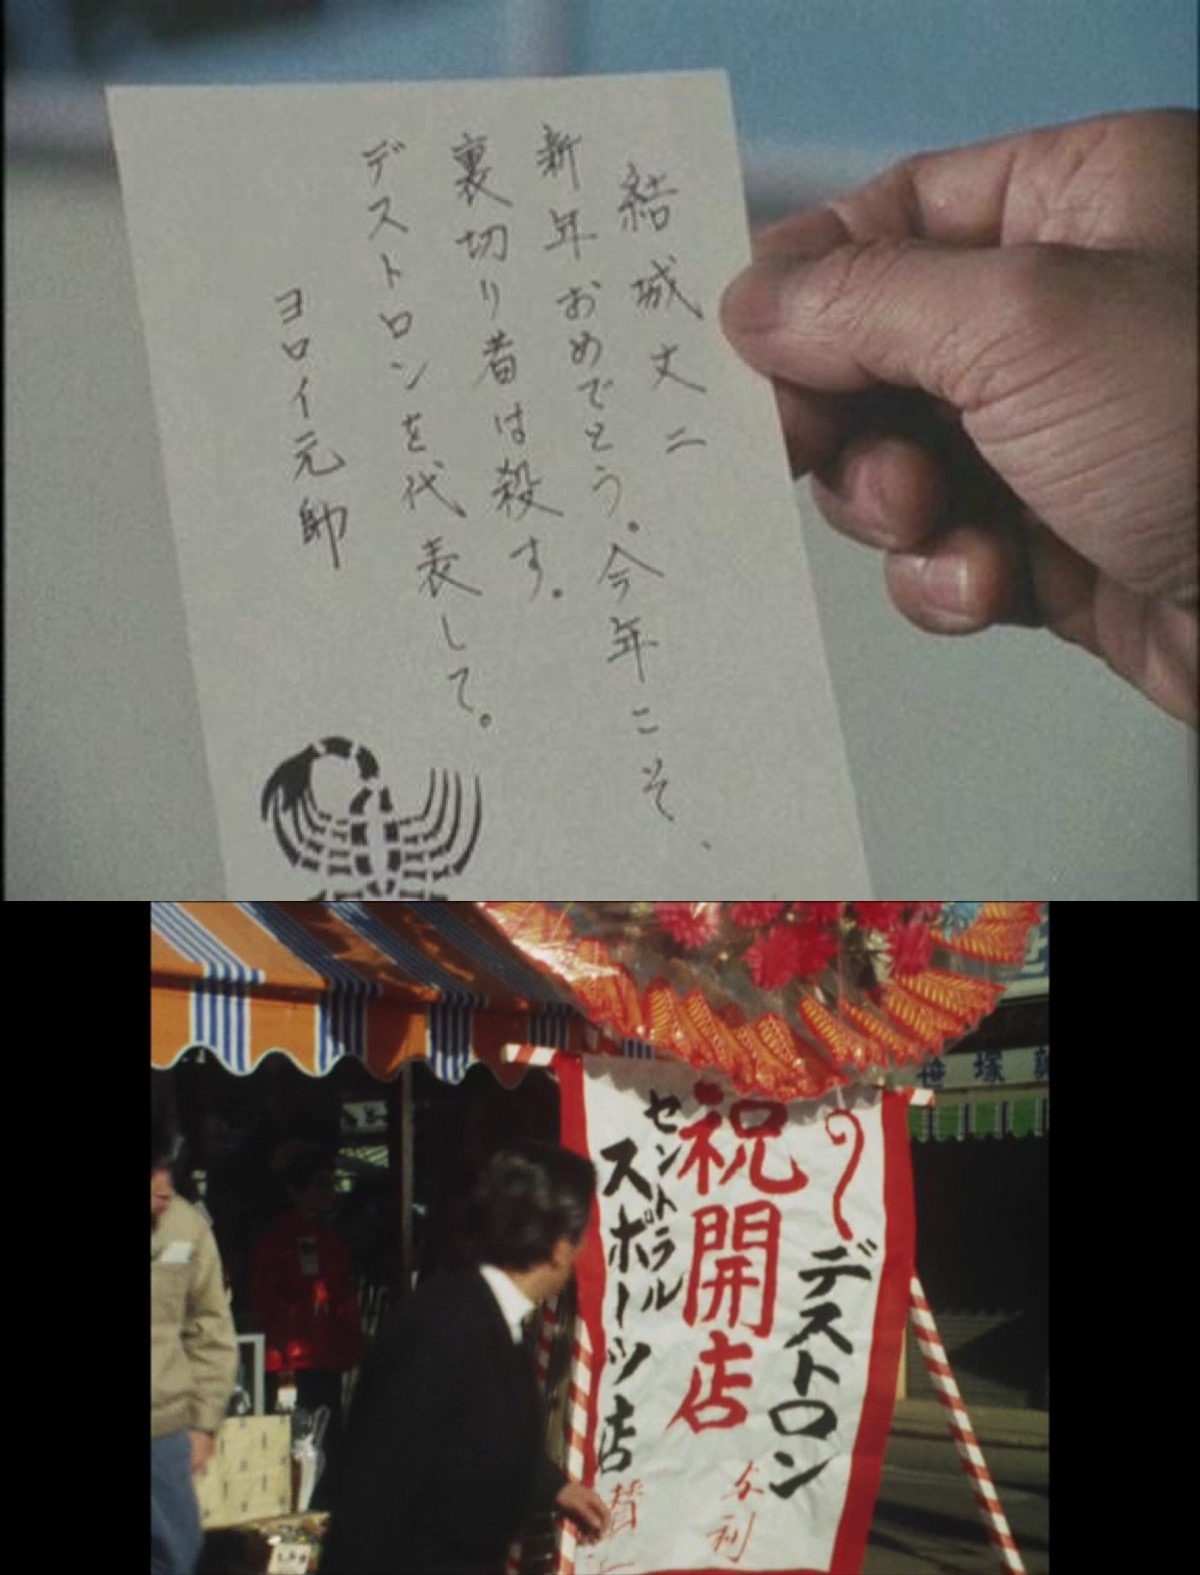 結城丈二
新年おめでとう。今年こそ、
裏切り者は殺す。
デストロンを代表して。
ヨロイ元帥
笹塚
デストロン
祝開店
セントラル
スポーツ店